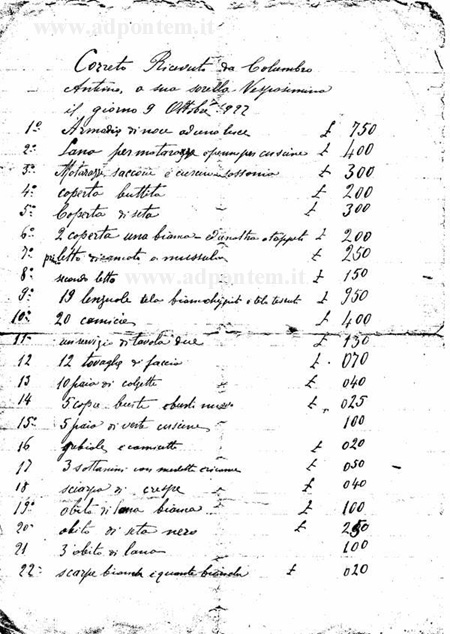 www.adpontem.it
Correto Ricevuto da Columbro
Antimo, a sua sorella Vesposimina
il giorno 9 Ottobre 922
1º Armadio di noce ad una luce £ 750
2º Lana per matarazzo e penne per cuscine £ 400
3º Matarazzi saccone e cuscini £ 300
4º coperta buttita £ 200
5º Coperta di seta £ 300
6º 2 coperta una bianca £ 200
7º letto £ 250
8º secondo letto £ 150
www.adpontem.it
9º 19 lenzuole tela £ 950
10º 20 camicie £ 400
11º di tavola due £ 130
12 12 tovaglie di faccia £ 070
13 10 paia di calzette £ 040
14 5 £ 025
15º 5 paio di veste cuscine 100
16 e camicette £ 020
17 3 sottanini con £ 050
18 sciarpa di crespe £ 040
19º obito di lana bianca £ 100
20º obito di seta nero £ 250
21 3 obito di lana 100
22º scarpe bianche e quante bianche £ 020